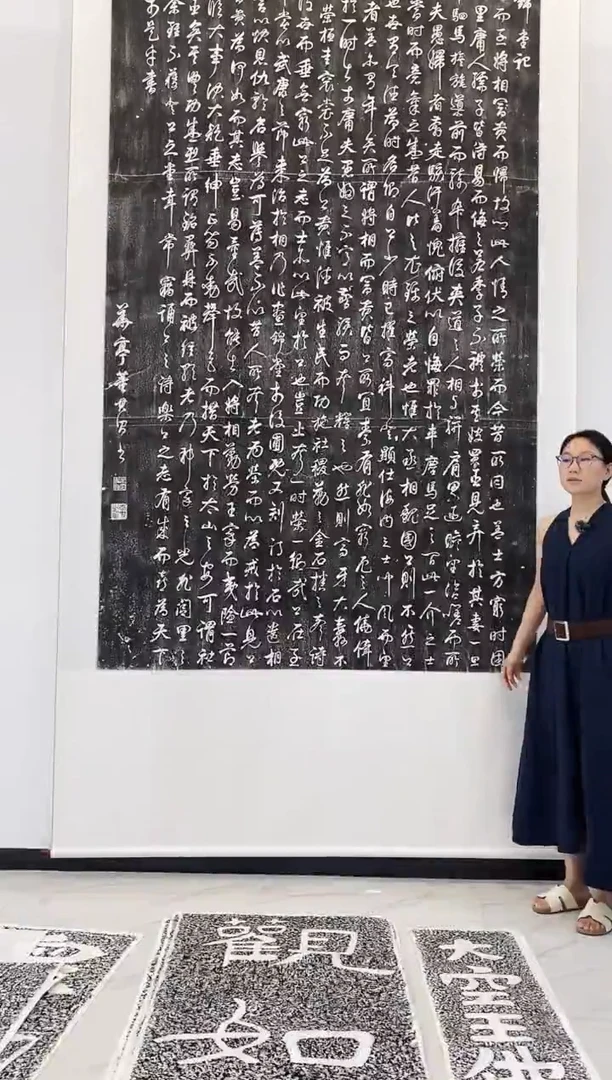 錦堂記
而至將相富貴而歸故鄉此人情之所榮而今昔之所同也蓋士方窮時困
里庸人孺子皆得易而侮之若季子不禮於其嫂買臣見棄於其妻一旦
駟馬旗旄導前而騎卒擁後夾道之人相與駢肩累迹瞻望咨嗟而所
夫愚婦者奔走駭汗羞愧俯伏以自悔罪於車塵馬足之間此一介之士
當時而意氣之盛昔人比之衣錦之榮者也惟大丞相魏國公則不然公
也世有令德為時名卿自公少時已擢高科登顯仕海內之士聞下風而望
者蓋亦有年矣所謂將相而富貴皆公所宜素有非如窮厄之人僥倖
於一時出於庸夫愚婦之不意以驚駭而夸耀之也然則高牙大纛不
榮桓圭袞冕不足為公貴惟德被生民而功施社稷勒之金石播之聲詩
後世而垂無窮此公之志而士亦以此望於公也豈止夸一時榮一鄉哉公在至
嘗以武康之節來治於相乃作晝錦之堂於後圃既又刻詩於石以遺相
言以快恩仇矜名譽為可薄蓋不以昔人所夸者為榮而以為戒於此見公
貴為何如而其志豈易量哉故能出入將相勤勞王家而夷險一節
臨大事決大議垂紳正笏不動聲色而措天下於泰山之安可謂社
臣矣其豐功盛烈所以銘彝鼎而被絃歌者乃邦家之光非閭里之
余雖不獲登公之堂幸嘗竊誦公之詩樂公之志有成而喜為天下
於是乎書
華亭董其昌書
大空王佛
觀如